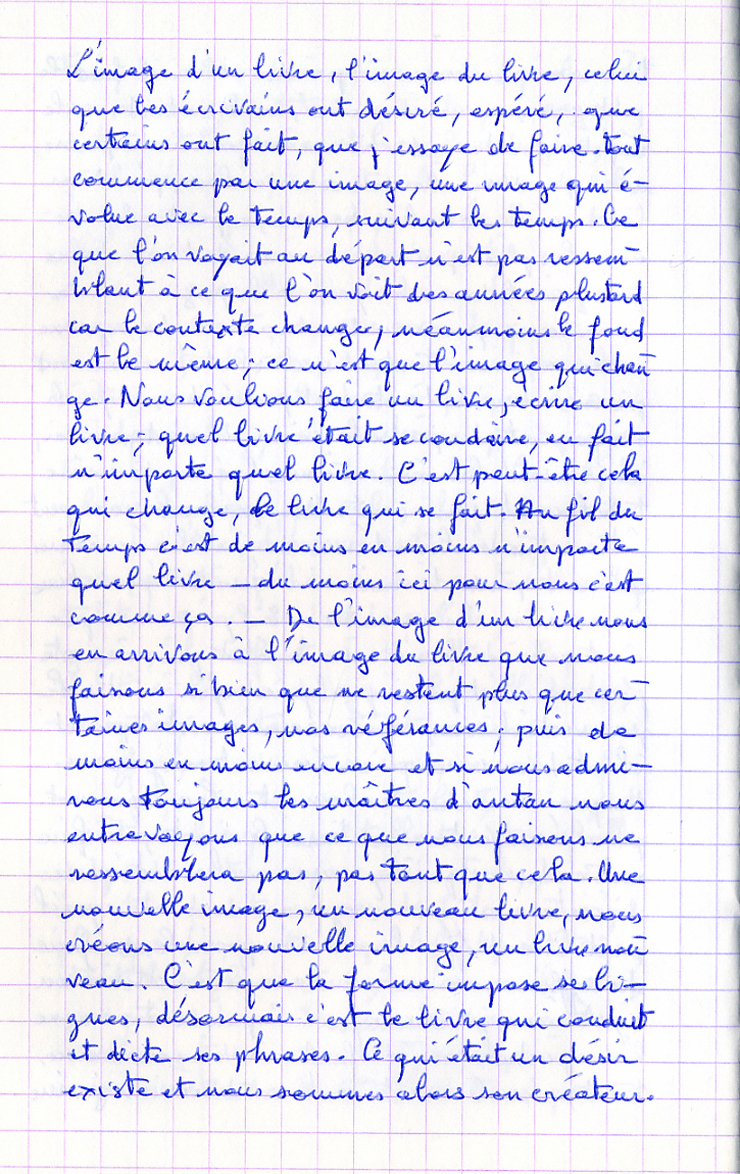 L'image d'un livre, l'image du livre, celui
que les écrivains ont désiré, espéré, que
certains ont fait, que j'essaye de faire. Tout
commence par une image, une image qui é-
volue avec le temps, suivant les temps. Ce
que l'on voyait au départ n'est pas ressem-
blant à ce que l'on voit des années plus tard
car le contexte change, néanmoins le fond
est le même; ce n'est que l'image qui chan-
ge. Nous voulions faire un livre, écrire un
livre; quel livre était secondaire, en fait
n'importe quel livre. C'est peut-être cela
qui change, le livre qui se fait. Au fil du
temps c'est de moins en moins n'importe
quel livre - du moins ici pour nous c'est
comme ça. - De l'image d'un livre nous
en arrivons à l'image du livre que nous
faisons si bien que ne restent plus que cer-
taines images, nos références; puis de
moins en moins encore et si nous admi-
rons toujours les maîtres d'antan nous
entrevoyons que ce que nous faisons ne
ressemblera pas, pas tant que cela. Une
nouvelle image, un nouveau livre, nous
créons une nouvelle image, un livre nou-
veau. C'est que la forme impose ses li-
gnes, désormais c'est le livre qui conduit
et dicte ses phrases. Ce qui était un désir
existe et nous sommes alors son créateur.